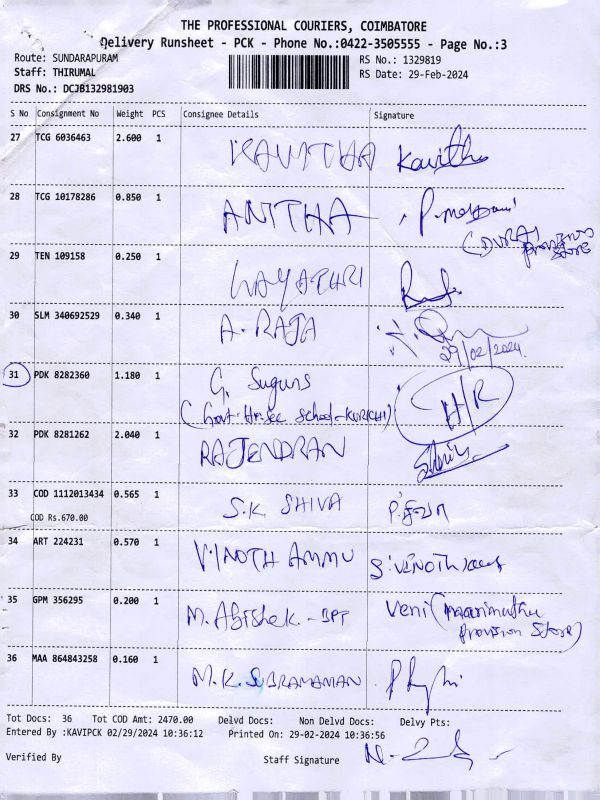 THE PROFESSIONAL COURIERS, COIMBATORE
Delivery Runsheet - PCK - Phone No.:0422-3505555 - Page No.:3
Route: SUNDARAPURAM
RS No.: 1329819
Staff: THIRUMAL
RS Date: 29-Feb-2024
DRS No.: DCJB132981903
S No Consignment No Weight PCS Consignee Details Signature
27 TCG 6036463 2.600 1 KAVITHA Kavitha
28 TCG 10178286 0.850 1 ANITHA
(DURAI
provision
store
29 TEN 109158 0.250 1 GAYATHRI
30 SLM 340692529 0.340 1 A. RAJA
29/02/2024
31 PDK 8282360 1.180 1 G. Suguns H/R
(Govt. Hr. Sec School-KURICHI)
32 PDK 8281262 2.040 1 RAJENDRAN
33 COD 1112013434 0.565 1 S.K. SHIVA
COD Rs.670.00
34 ART 224231 0.570 1 VINOTH AMMU S.VINOTH
35 GPM 356295 0.200 1 M. Abishek - BPT Veni (maarimuthu
provision Store)
36 MAA 864843258 0.160 1 M.K. SUBRAMANIAN
Tot Docs: 36 Tot COD Amt: 2470.00 Delvd Docs: Non Delvd Docs: Delvy Pts:
Entered By :KAVIPCK 02/29/2024 10:36:12 Printed On: 29-02-2024 10:36:56
Verified By Staff Signature